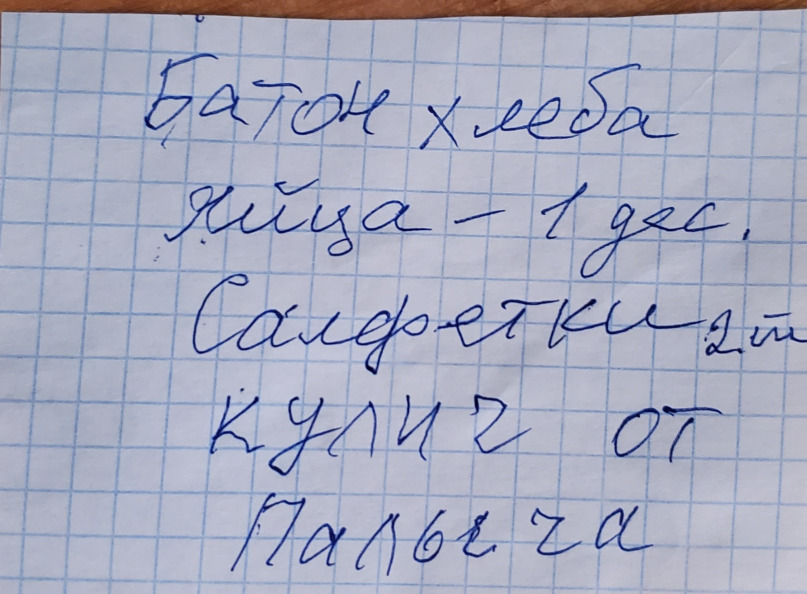 Батон хлеба
яйца - 1 дес.
Салфетки
кулич от
Палыча